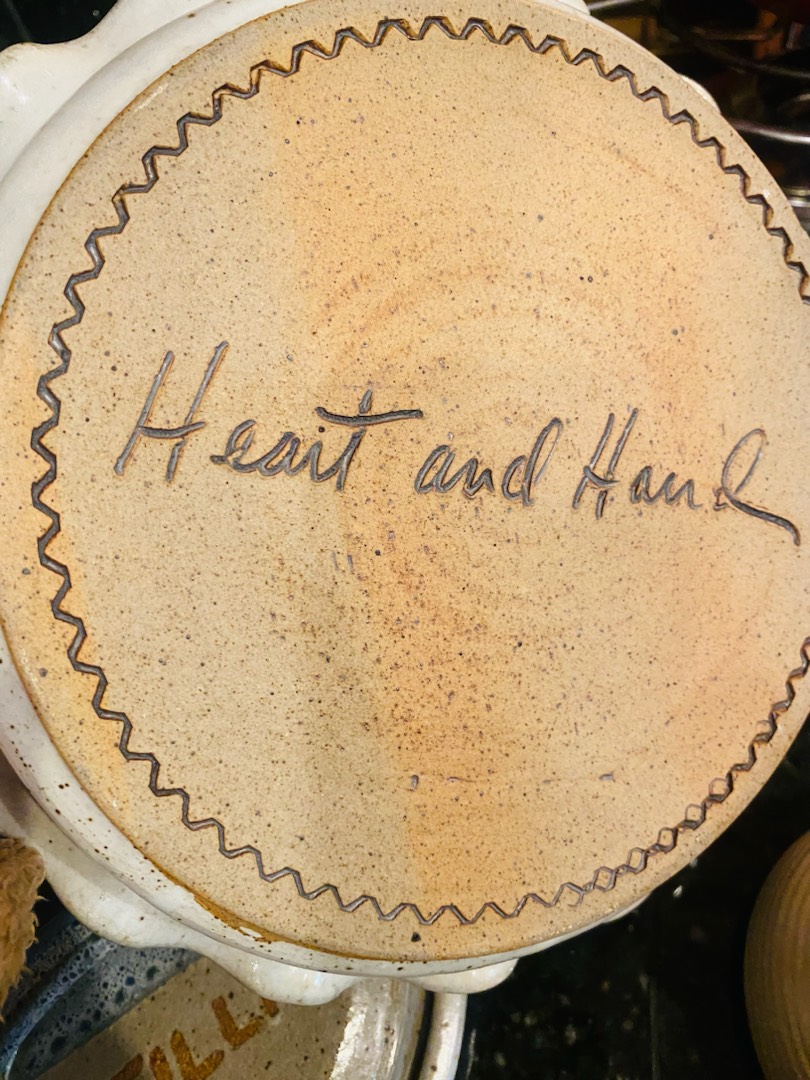 Heart and Hand
ILL